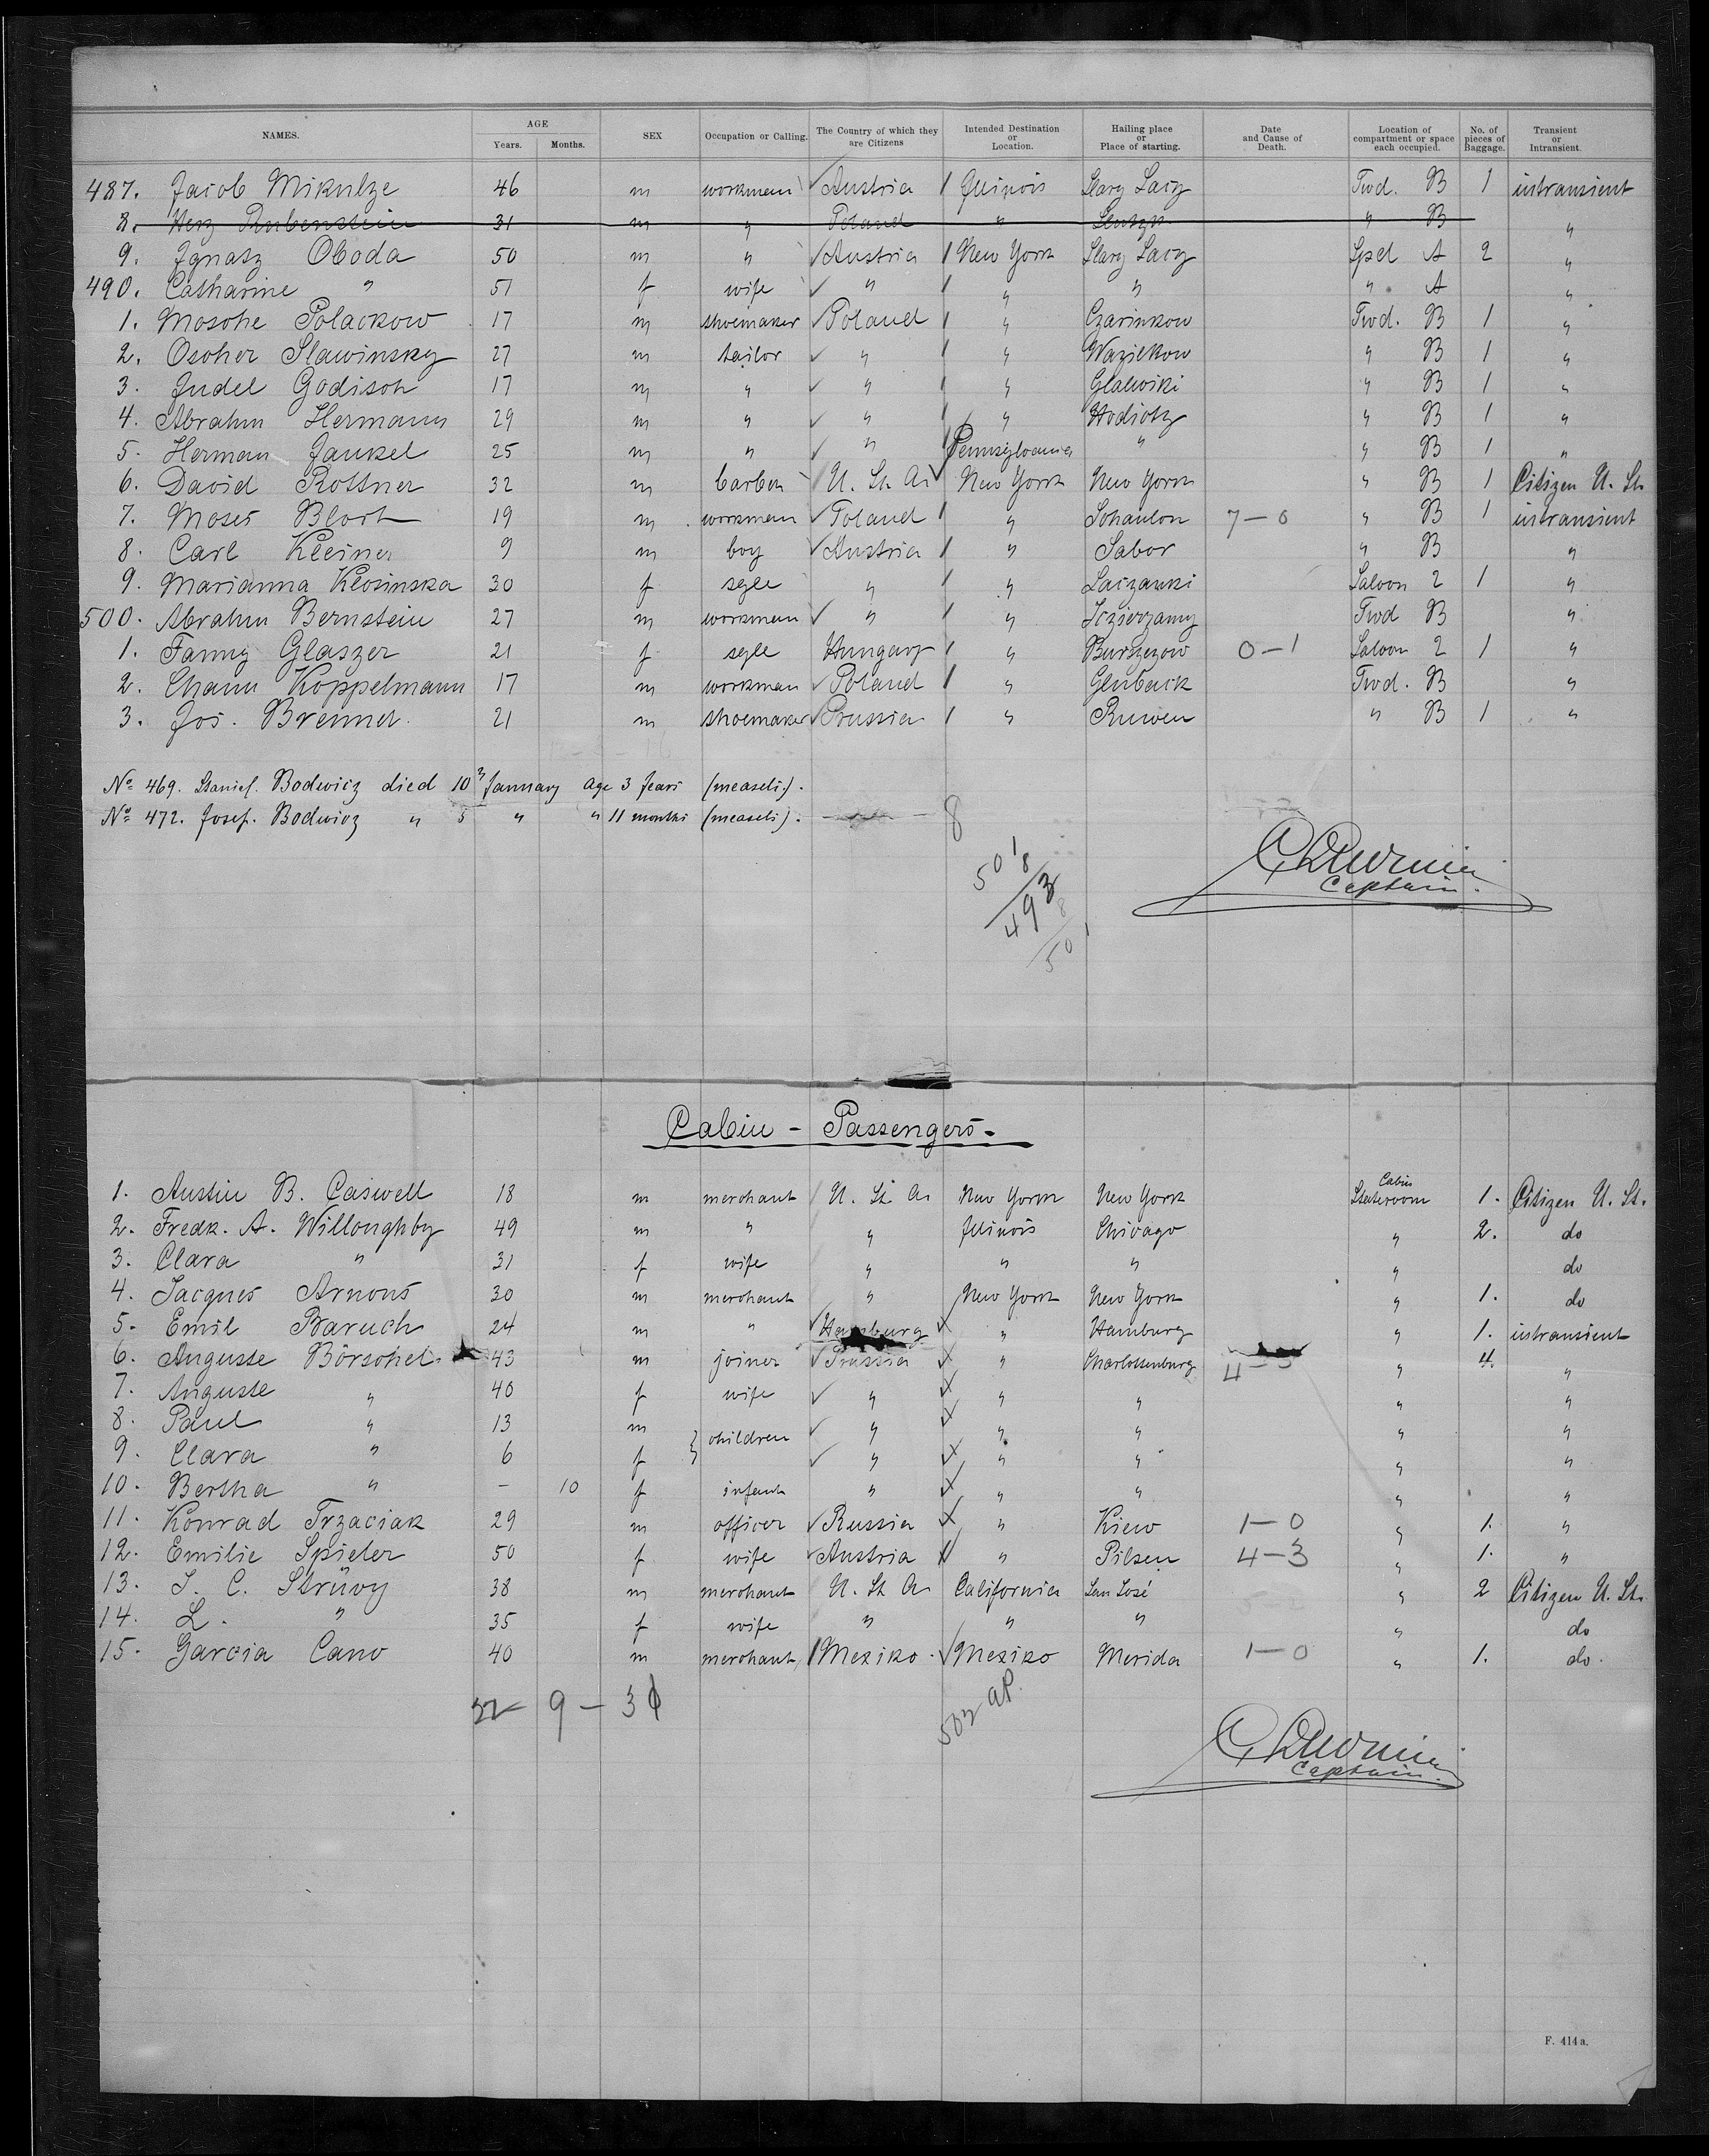 NAMES. AGE Years. Months. SEX Occupation or Calling. The Country of which they are Citizens Intended Destination or Location. Hailing place or Place of starting. Date and Cause of Death. Location of compartment or space each occupied. No. of pieces of Baggage. Transient or Intransient.
487. Jacob Mikulze 46 m workman Austria Illinois Stary Sacz Twd. B 1 intransient
8. Herz Rubenstein 31 m " Poland " " B "
9. Ignatz Oboda 50 m " Austria New York Stary Sacz Spd A 2 "
490. Catharine " 51 f wife " " " " A "
1. Mosche Polackow 17 m shoemaker Poland " Czarinkow Twd. B 1 "
2. Oscher Slawinsky 27 m tailor " " Wazilkow " B 1 "
3. Judel Godisch 17 m " " " Glalwiki " B 1 "
4. Abrahm Hermann 29 m " " " Hodiotz " B 1 "
5. Herman Jankel 25 m " " Pennsylvania " " B 1 "
6. David Rottner 32 m barber U. St. A. New York New York " B 1 Citizen U. St.
7. Moses Bloch 19 m workman Poland " Schaulon 7-0 " B 1 intransient
8. Carl Kleiner 9 m boy Austria " Sabor " B "
9. Marianna Klosinska 30 f sgle " " Laczanki Saloon 2 1 "
500. Abrahm Bernstein 27 m workman " " Twd B "
1. Fanny Glaszer 21 f sgle Hungary " Burszezow 0-1 Saloon 2 1 "
2. Chaim Koppelmann 17 m workman Poland " Gluback Twd. B "
3. Jos. Brenner 21 m shoemaker Prussia " Ruwen " B 1 "
No 469. Daniel. Bodwicz died 10 January age 3 Jears (measels).
No 472. Josef. Bodwicz " 5 " " 11 months (measels).
8
501
8
493
8
501
Captain.
Cabin - Passengers.
1. Austin B. Caswell 18 m merchant U. St. A. New York New York Cabin Stateroom 1. Citizen U. St.
2. Fredk. A. Willoughby 49 m " " Illinois Chicago " 2. do
3. Clara " 31 f wife " " " " do
4. Jacques Arnous 30 m merchant " New York New York " 1. do
5. Emil Baruch 24 m " Hamburg " Hamburg " 1. intransient
6. Auguste Börschel 43 m joiner Prussia " Charlottenburg 4-3 " 4. "
7. Auguste " 40 f wife " " " " "
8. Paul " 13 m } children " " " " "
9. Clara " 6 f " " " " "
10. Bertha " - 10 f infant " " " " "
11. Konrad Trzaciak 29 m officer Russia " Kiew 1-0 " 1. "
12. Emilie Spieler 50 f wife Austria " Pilsen 4-3 " 1. "
13. J. C. Strüvy 38 m merchant U. St. A. California San José " 2 Citizen U. St.
14. L. " 35 f wife " " " " do
15. Garcia Cano 40 m merchant Mexiko Mexiko Merida 1-0 " 1. do.
32 - 9 - 31
503 AP.
Captain.
F. 414 a.